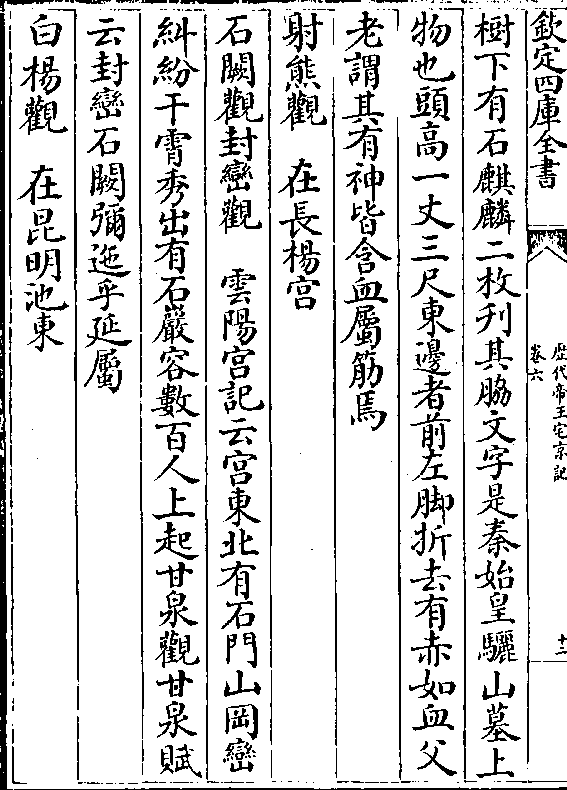 欽定四庫全書
歴代帝王宅京記
卷六
十二
樹下有石麒麟二枚刋其脇文字是秦始皇驪山墓上
物也頭高一丈三尺東邊者前左脚折去有赤如血父
老謂其有神皆含血屬筋焉
射熊觀　在長楊宫
石闕觀封巒觀　雲陽宫記云宫東北有石門山岡巒
糾紛干霄秀出有石巖容數百人上起甘泉觀甘泉賦
云封巒石闕彌迤乎延屬
白楊觀　在昆明池東